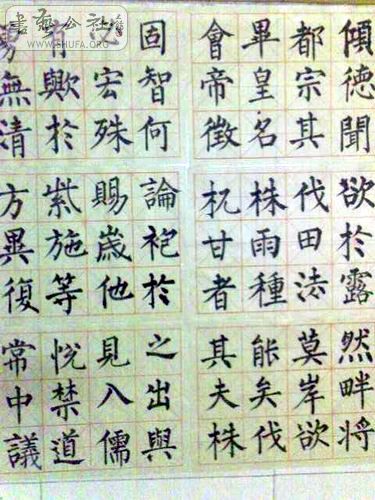 傾德聞欲於露然畔将
都宗其伐田法莫岸欲
畢皇名株雨種能矣伐
會帝徵杌甘者其夫株
固智何論袍於之出與
宏殊賜歲他見入儒
有歟於紫施等悦禁道
無清方異復常中議
書藝公社
WWW.SHUFA.ORG